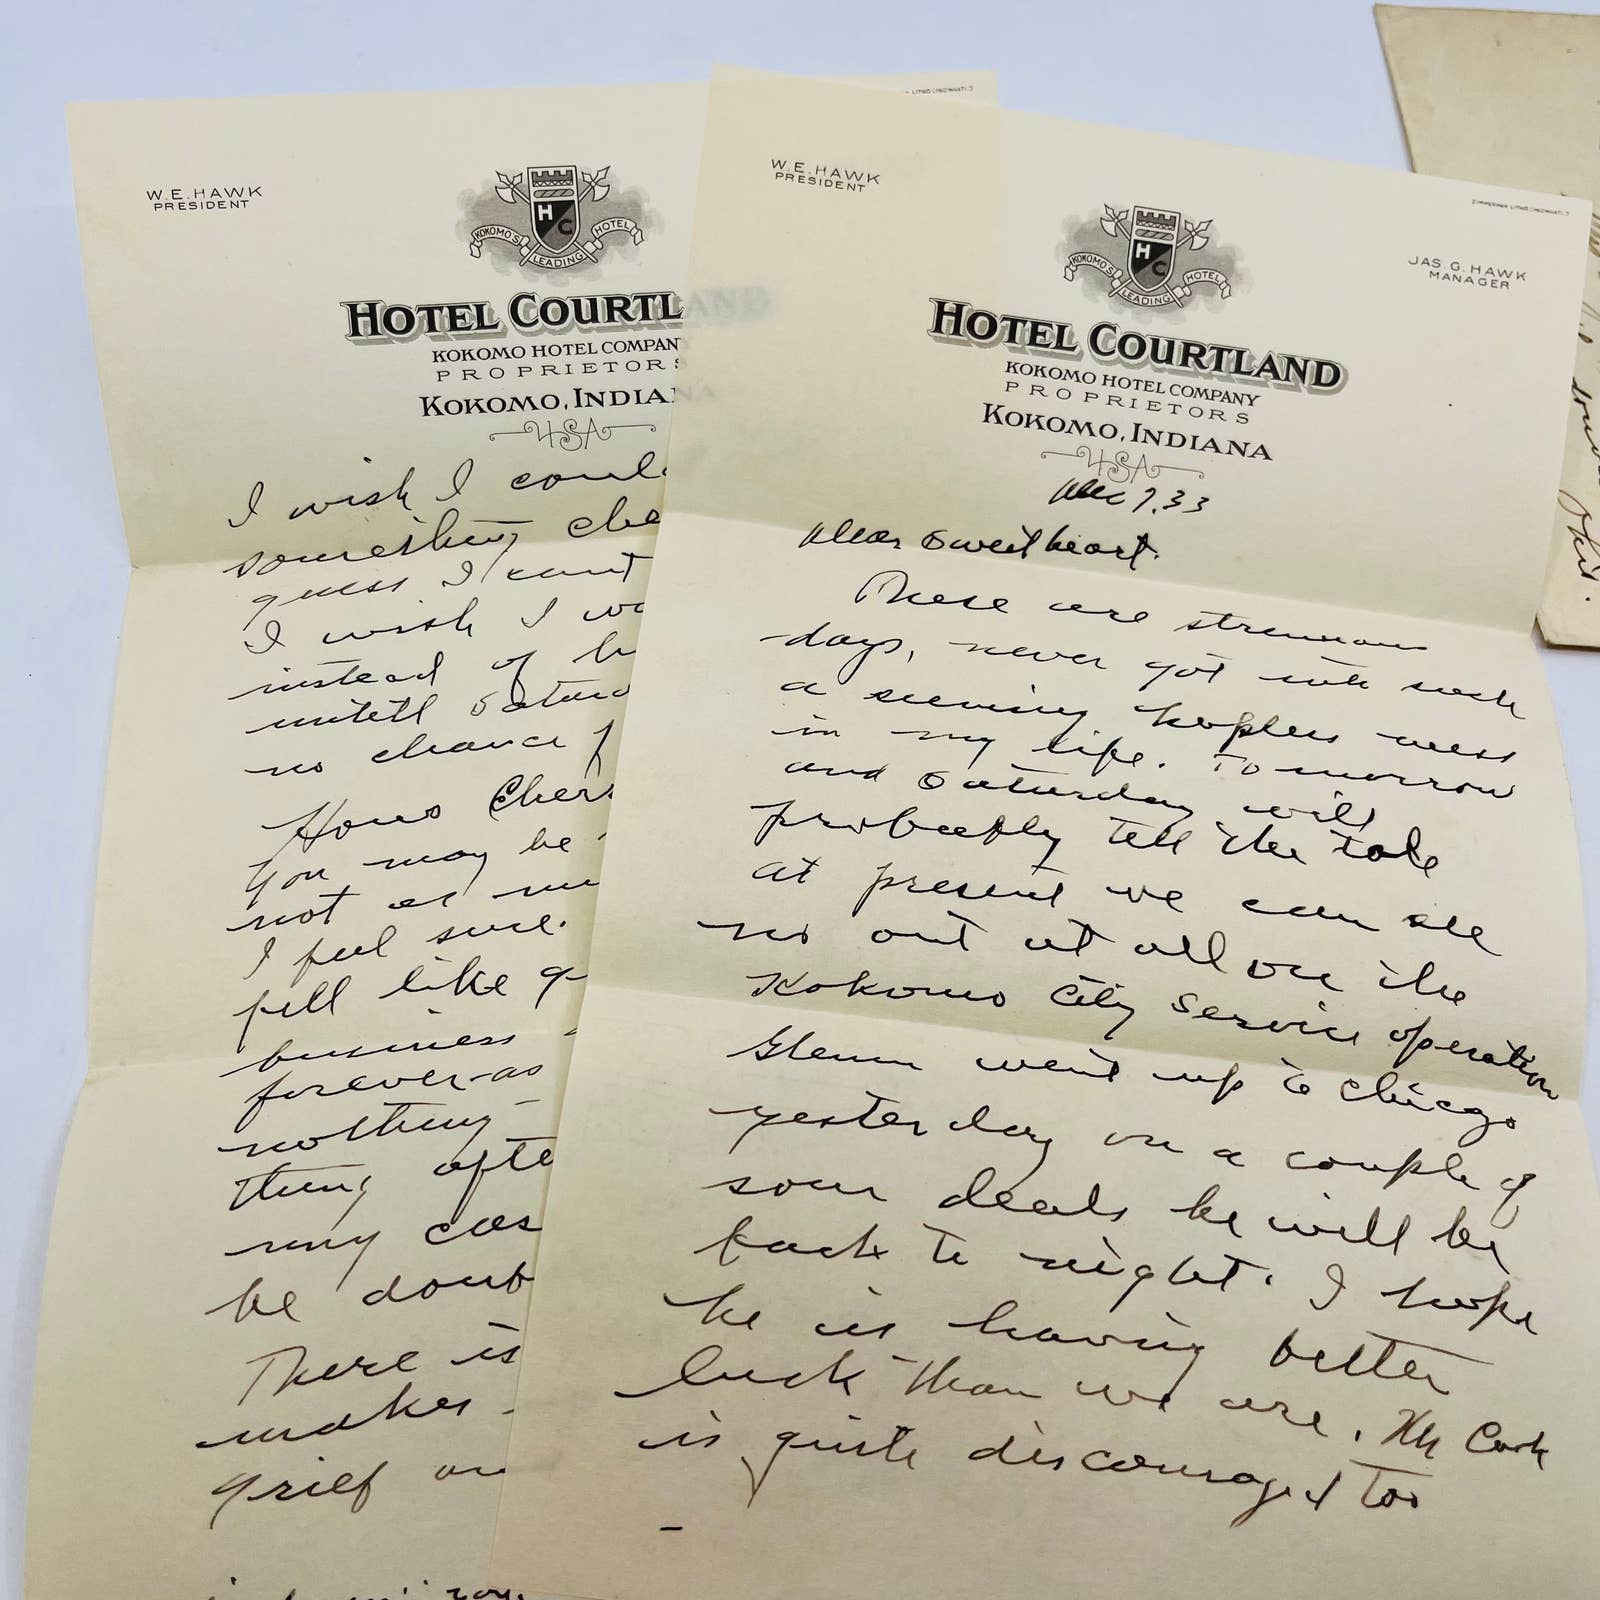 W.E. HAWK
PRESIDENT
H C
KOKOMO'S LEADING HOTEL
HOTEL COURTL
KOKOMO HOTEL COMPANY
PROPRIETORS
KOKOMO, INDIANA
USA
I wish I coul
something che
guess I cant
I wish I wa
instead of
untill Saturd
no chance f
Hows Cher
You may be
not as mu
I feel sure.
fell like
business
forever-as
nothing-
thing afte
my cas
be doub
There is
makes
grief an
LITHO CINCINNATI.O
W.E. HAWK
PRESIDENT
ZIMMERMAN LITHO CINCINNATI.O
JAS. G. HAWK
MANAGER
H C
KOKOMO'S LEADING HOTEL
HOTEL COURTLAND
KOKOMO HOTEL COMPANY
PROPRIETORS
KOKOMO, INDIANA
USA
Dec 7.33
Dear Sweetheart.
These are strenuous
days, never got into such
a seeming hopless mess
in my life. Tomorrow
and Saturday will
probably tell the tale
at present we can see
no out at all on the
Kokomo City Service operation
Glenn went up to Chicago
yesterday on a couple of
sour deals he will be
back to night. I hope
he is having better
luck than we are. Mr Cook
is quite discouraged too